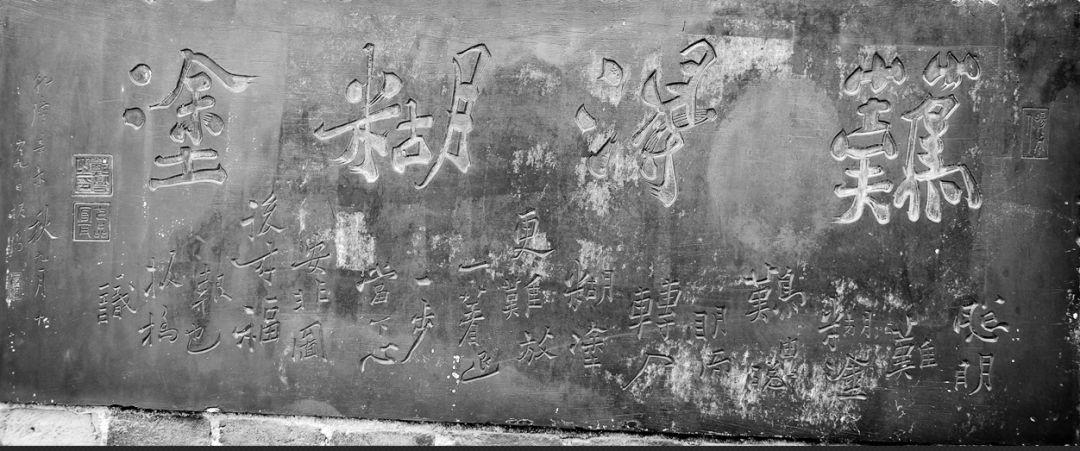 難得糊塗
聰明
難
糊塗
難由聰
明而
轉入
糊塗
更難放
一著退
一步
當下心
安非圖
後來福
報也
板橋
識
秋九月